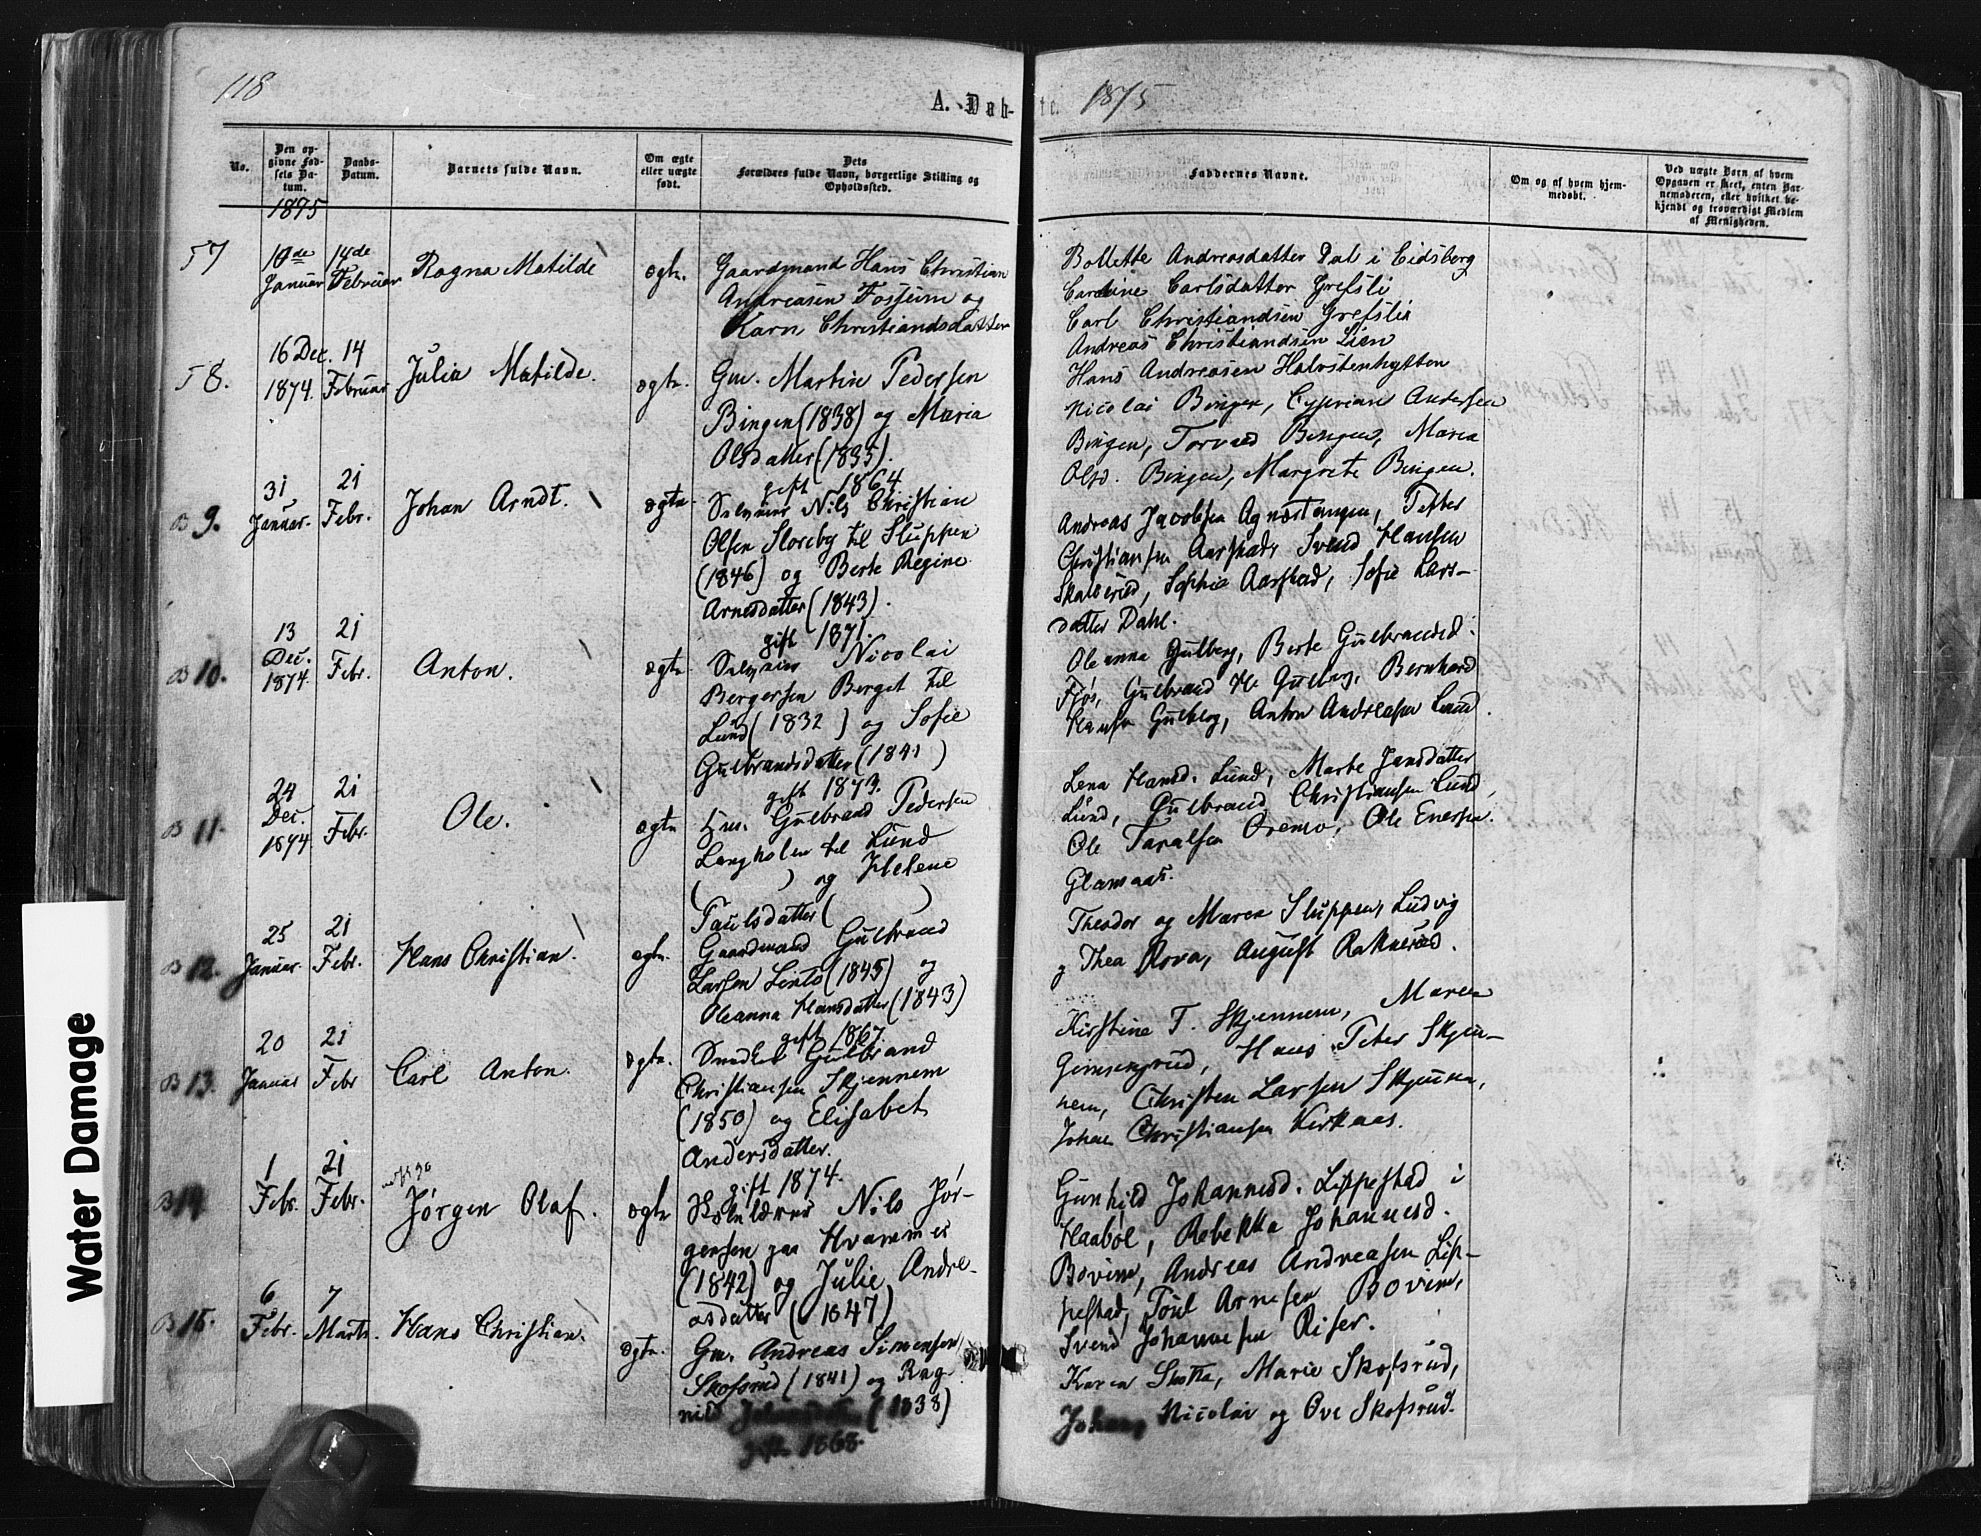 118
A. Døb-
te.
1875
No.
Den op-
givne Fød-
sels Da-
tum.
Daabs-
Datum.
Barnets fulde Navn.
Om ægte
eller uægte
født.
Dets
Forældres fulde Navn, borgerlige Stilling og
Opholdssted.
Faddernes Navne.
Om og af hvem hjem-
medøbt.
Ved uægte Børn af hvem
Opgaven er skeet, enten Bar-
nemoderen, eller hvilket be-
kjendt og troværdigt Medlem
af Menigheden.
1875
57
10de
Januar
14de
Februar
Ragna Matilde
ægte.
Gaardmand Hans Christian
Andreasen Fossum og
Karn Christiandsdatter
Bollette Andreasdatter Dal i Eidsberg
Caroline Carlsdatter Grefsli
Carl Christiandsen Grefsli
Andreas Christiandsen Lien
Hans Andreasen Holvstenhytten
58.
16 Dec.
1874.
14
Februar
Julia Matilde.
ægte.
Gm. Martin Pedersen
Bingen (1838) og Maria
Olsdatter (1835).
gift 1864
Nicolai Bingen, Cyprian Andersen
Bingen, Torvald Bingen, Maria
Olsd. Bingen, Margrete Bingen.
B 9.
31
Januar.
21
Febr.
Johan Arndt.
ægte
Selveier Nils Christian
Olsen Storeby til Sluppen
(1846) og Berte Regine
Arnesdatter (1843).
gift 1871.
Andreas Jacobsen Agnæstangen, Petter
Christiansen Aarstad, Svend Hansen
Skalerud, Sophie Aarstad, Sofie Lars-
datter Dahl.
B 10.
13
Dec.
1874.
21
Febr.
Anton.
ægte
Selveier Nicolai
Bergersen Berget til
Lund (1832) og Sofie
Gulbrandsdatter (1841)
gift 1873.
Oleanna Gulberg, Berte Gulbrandsd.
Fjøs, Gulbrand H. Gulberg, Bernhard
Hansen Gulberg, Anton Andreasen Lund.
B 11.
24
Dec.
1874
21
Febr.
Ole.
ægte
Hm. Gulbrand Pedersen
Langholen til Lund
( ) og Helene
Paulsdatter ( )
Lena Hansd. Lund, Marte Jansdatter
Lund, Gulbrand Christiansen Lund,
Ole Taralsen Oremo, Ole Enersen
Glamaas.
B 12.
25
Januar.
21
Febr.
Hans Christian.
ægte.
Gaardmand Gulbrand
Larsen Linto (1845) og
Oleanna Hansdatter (1843)
gift 1867.
Theodor og Maren Sluppen, Ludvig
og Thea Rova, August Raknerud.
B 13.
20
Januar
21
Febr
Carl Anton.
ægte.
Smedk. Gulbrand
Christiansen Skjennem
(1850) og Elisabet
Andersdatter.
gift 1874.
Kirstine T. Skjennem, Maren
Gimsengrud, Hans Peter Skjen-
nem, Christen Larsen Skjennem,
Johan Christiansen Kirkaas.
B 14
1
Febr.
21
Febr.
Jørgen Olaf.
ægte
Skolelærer Nils Jør-
gensen paa Hvammer
(1842) og Julie Andre-
asdatter (1847)
Gunhild Johannesd. Lippestad i
Haabøl, Rebekka Johannesd.
Bovim, Andreas Andreasen Lip-
pestad, Poul Arnesen Bovim,
Svend Johannesen Riser.
B 15.
6
Febr.
7
Marts.
Hans Christian.
ægte.
Gm. Andreas Simensen
Skofsrud (1841) og Rag-
nild (1838)
gift 1868.
Karen Slotta, Marie Skofsrud,
Johan Nicolai og Ove Skofsrud.
Water Damage